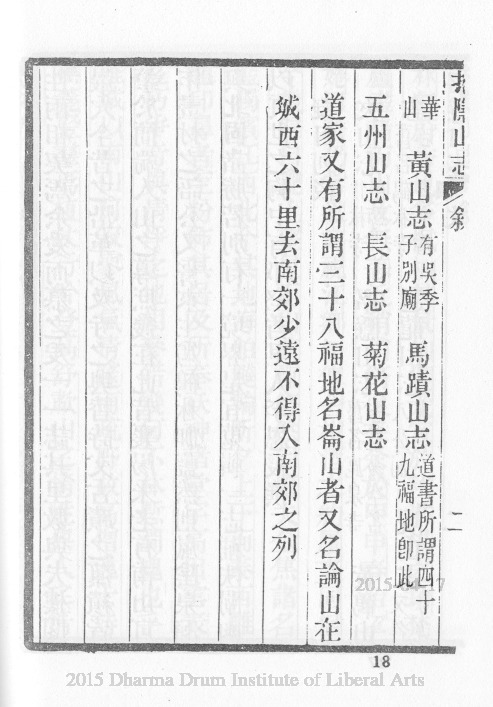 招隱山志 叙 二
華山 黃山志 有吳季子別廟 馬蹟山志 道書所謂四十九福地卽此
五州山志 長山志 菊花山志
道家又有所謂三十八福地名崙山者又名論山在
城西六十里去南郊少遠不得入南郊之列
2015-04-17
18
2015 Dharma Drum Institute of Liberal Arts